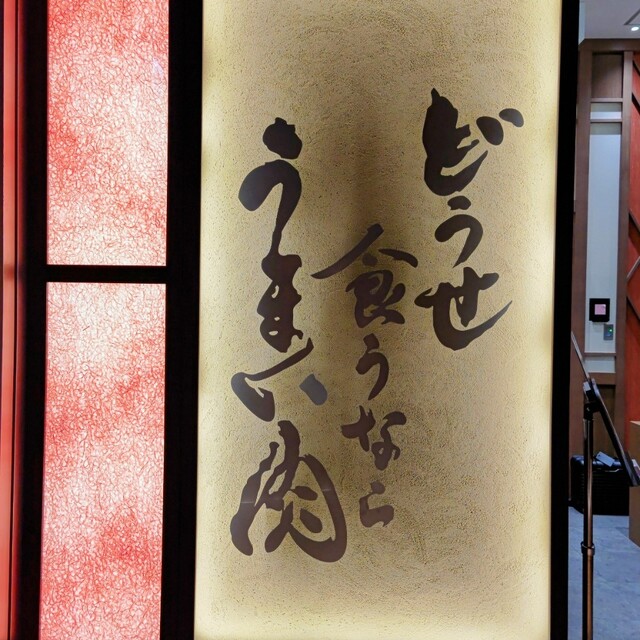 どうせ
食うなら
うまい肉